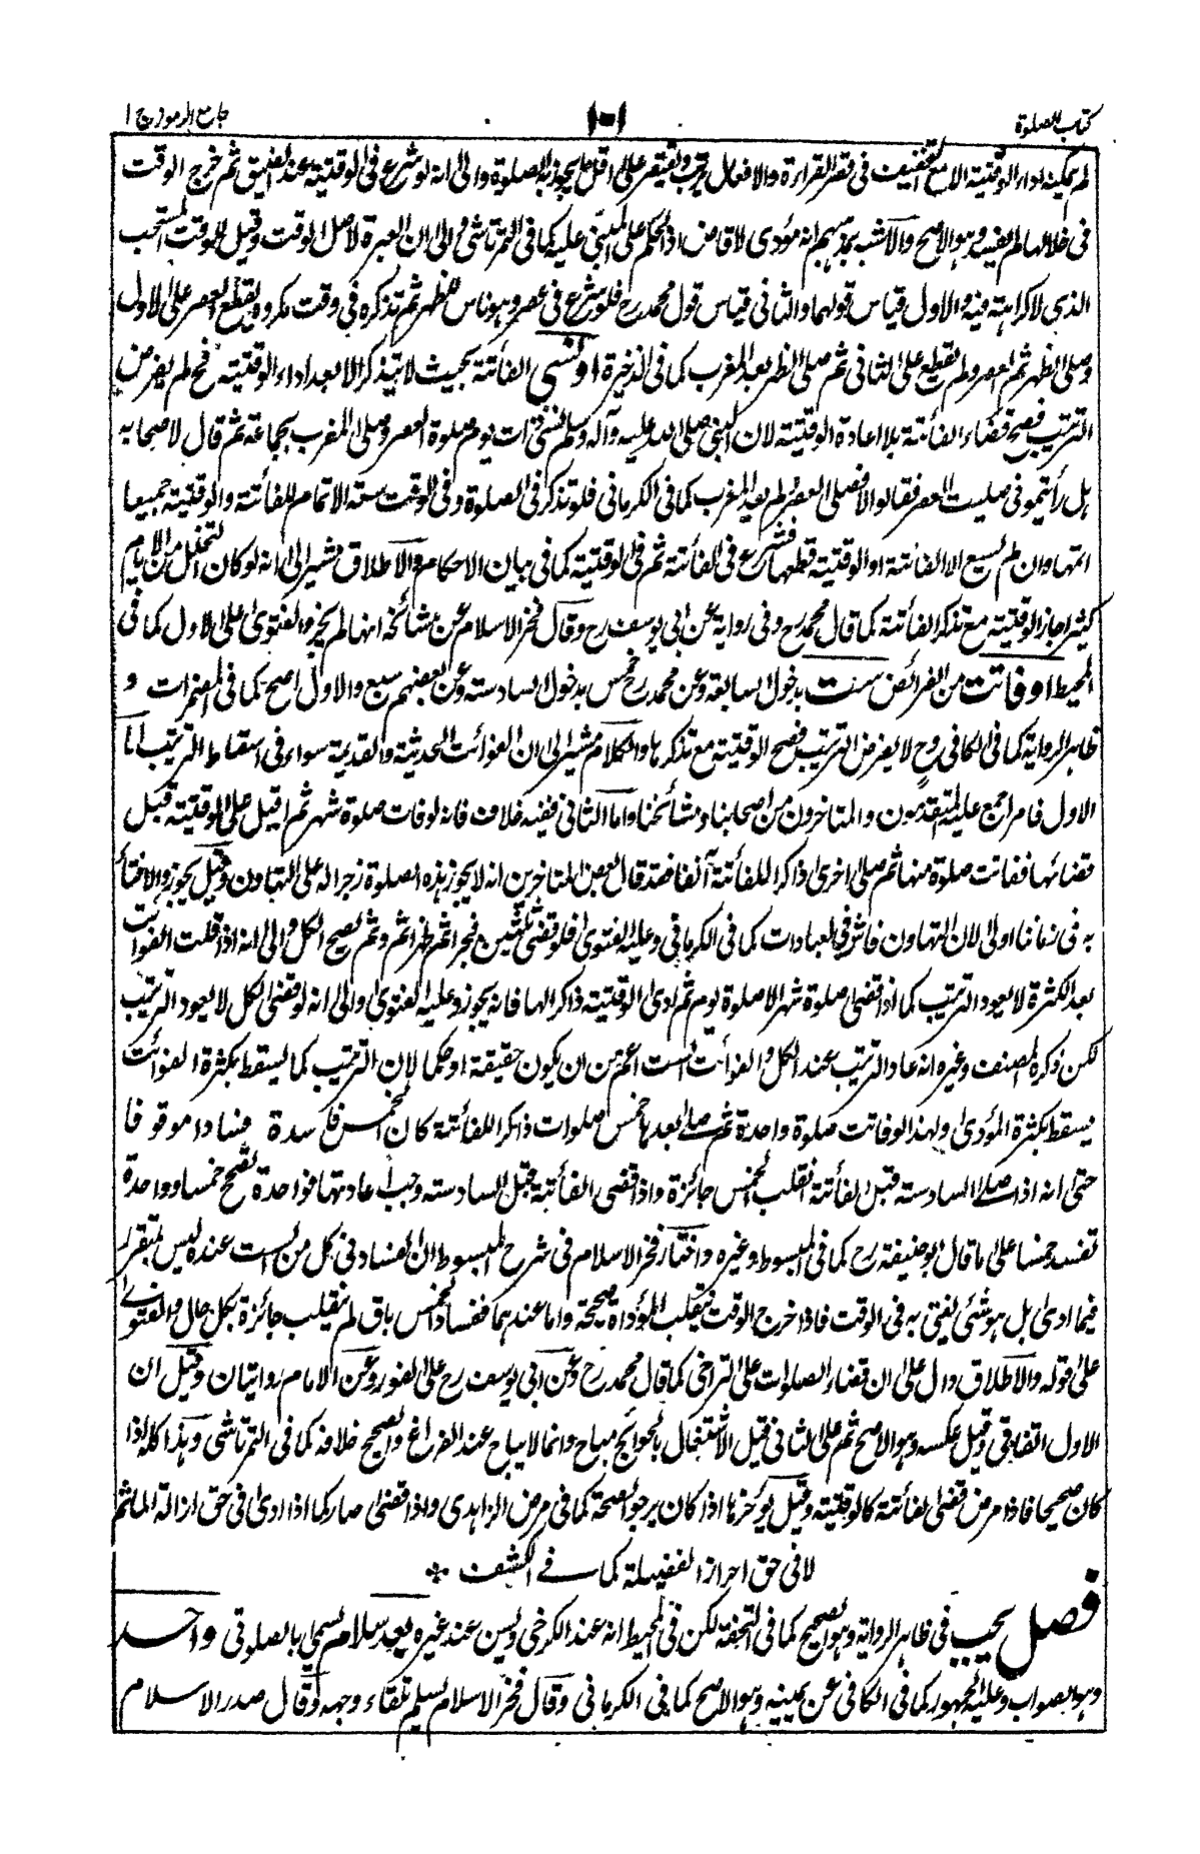 كتاب الصلوة ١٠١ جامع الرموز ج ١
لم يمكنه اداء الوقتية الا مع التخفيف فى قصر القراءة والافعال يرتب ويقتصر على اقل ما يجوز به الصلوة والى انه لو شرع فى الوقتية عند الضيق ثم خرج الوقت
فى خلالها لم يفسد وهو الاصح والاشبه بمذهبهم انه مؤدى لا قاض اذ الحكم على المبنى عليه كما فى التمرتاشى والى ان العبرة لاصل الوقت وقيل للوقت المستحب
الذى لا كراهة فيه والاول قياس قولهما والثانى قياس قول محمد رح فلو شرع فى عصر وهو ناس للظهر ثم تذكره فى وقت مكروه يقطع العصر على الاول
وصلى الظهر ثم العصر ولم يقطع على الثانى ثم صلى الظهر بعد المغرب كما فى الذخيرة او نسى الفائتة بحيث لا يتذكر الا بعد اداء الوقتية فح لم يفرض
الترتيب فيصح قضاء الفائتة بلا اعادة الوقتية لان النبى صلى الله عليه وآله وسلم نسى ذات يوم صلوة العصر وصلى المغرب بجماعة ثم قال لاصحابه
هل رأيتمونى صليت العصر فقالوا لا فصلى العصر ثم لم يعد المغرب كما فى الكرمانى فلو تذكر فى الصلوة وفى الوقت سعة الاتمام للفائتة والوقتية جميعا
اتمها وان لم يسع الا الفائتة او الوقتية قطعها فشرع فى الفائتة ثم فى الوقتية كما فى بيان الاحكام والاطلاق مشير الى انه لو كان التخلل من الايام
كثيرا جاز الوقتية مع تذكر الفائتة كما قال محمد رح وفى رواية عن ابى يوسف رح وقال فخر الاسلام عن مشائخه انها لم يجز والفتوى على الاول كما فى
المحيط او فاتت من الفرائض ست بدخول السابعة وعن محمد رح خمس بدخول السادسة وعن بعضهم سبع والاول اصح كما فى المضمرات و
ظاهر الرواية كما فى الكافى وح لا يفرض الترتيب فيصح الوقتية مع تذكرها والكلام مشير الى ان الفوائت الحديثة والقديمة سواء فى اسقاط الترتيب اما
الاول فامر اجمع عليه المتقدمون والمتاخرون من اصحابنا ومشائخنا واما الثانى ففيه خلاف فانه لو فات صلوة شهر ثم اقبل صلى الوقتية قبل
قضائها ففاتت صلوة منها ثم صلى اخرى ذاكرا للفائتة آنفا فقد قال بعض المتاخرين انه لا يجوز هذه الصلوة زجرا له على التهاون وقيل يجوز والافتاء
به فى زماننا اولى لان التهاون فاش فى العبادات كما فى الكرمانى وعليه الفتوى فلو قضى ثلثين فجرا ثم ظهرا ثم وثم يصح الكل والى انه اذا قلت الفوائت
بعد الكثرة لا يعود الترتيب كما اذا قضى صلوة شهر الا صلوة يوم ثم ادى الوقتية ذاكرا لها فانه يجوز وعليه الفتوى والى انه لو قضى الكل لا يعود الترتيب
لكن ذكره المصنف وغيره انه عاد الترتيب عند الكل والفوائت الست اعم من ان يكون حقيقة او حكما لان الترتيب كما يسقط بكثرة الفوائت
يسقط بكثرة المؤدى ولهذا لو فاتت صلوة واحدة ثم صلى بعدها خمس صلوات ذاكرا للفائتة كان الخمس فاسدة فسادا موقوفا
حتى انه اذا صلى السادسة قبل الفائتة انقلب الخمس جائزة واذا قضى الفائتة قبل السادسة وجب اعادتها فواحدة تصحح خمسا وواحدة
تفسد خمسا على ما قال ابو حنيفة رح كما فى المبسوط وغيره واختار فخر الاسلام فى شرح المبسوط ان الفساد فى كل من الست عنده ليس بمتقرر
فيما ادى بل هو شئ يفتى به فى الوقت فاذا خرج الوقت ينقلب المؤداة صحيحة واما عندهما ففساد الخمس باق لم ينقلب جائزة بكل حال والفتوى
على قوله والاطلاق دال على ان قضاء الصلوات على التراخى كما قال محمد رح وعن ابى يوسف رح على الفور وعن الامام روايتان وقيل ان
الاول اتفاقى وقيل عكسه وهو الاصح ثم على الثانى قيل الاشتغال بالحوائج مباح وانما لا يباح عند الفراغ والصحيح خلافه كما فى التمرتاشى وهذا كله اذا
كان صحيحا فاذا مرض قضى الفائتة كالوقتية وقيل يؤخرها اذا كان يرجو الصحة كما فى مرض الزاهدى واذا قضى صار كما اذا ادى فى حق ازالة الماثم
لا فى حق احراز الفضيلة كما فى الكشف
فصل يجب فى ظاهر الرواية وهو الصحيح كما فى التحفة لكن فى المحيط انه عند الكرخى وليس عند غيره بعد سلام يسمى بالصلوتى واحد
وهو الصواب وعليه الجمهور كما فى الكافى عن يمينه وهو الاصح كما فى الكرمانى وقال فخر الاسلام يسلم تلقاء وجهه وقال صدر الاسلام